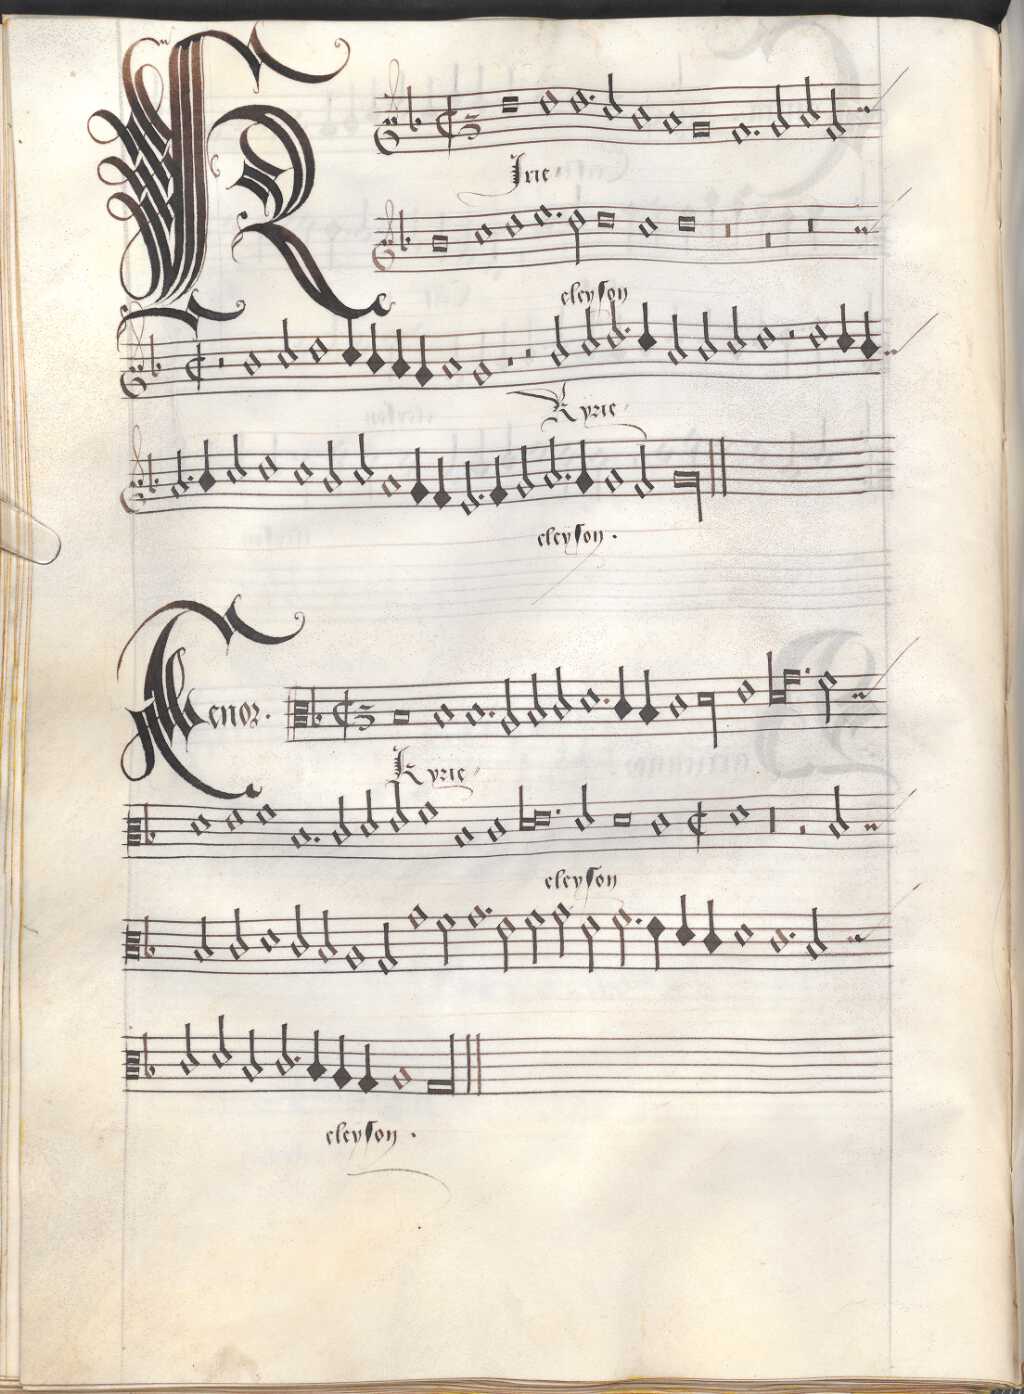 Kirie
eleyson
Kyrie
eleyson .
Tenor .
Kyrie
eleyson
eleyson .